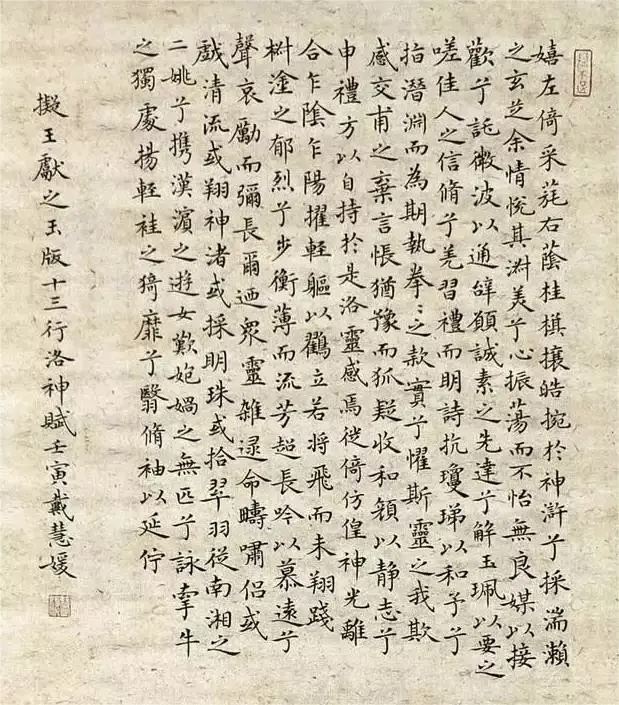 嬉左倚采旄右蔭桂旗攘皓捥於神滸兮採湍瀨
之玄芝余情悅其淋美兮心振蕩而不怡無良媒以接
歡兮託微波以通辭願誠素之先達兮解玉珮以要之
嗟佳人之信脩兮羌習禮而明詩抗瓊珶以和予兮
指潛淵而為期執拳〻之款實兮懼斯靈之我欺
感交甫之棄言悵猶豫而狐疑收和顏以靜志兮
申禮方以自持於是洛靈感焉徙倚仿偟神光離
合乍陰乍陽擢輕軀以鸖立若將飛而未翔踐
椒塗之郁烈兮步衡薄而流芳超長吟以慕遠兮
聲哀勵而彌長爾迺眾靈雜遝命疇嘯侶或
戲清流或翔神渚或採明珠或拾翠羽從南湘之
二姚兮攜漢濱之遊女歎媧之無匹兮詠牽牛
之獨處揚輕袿之猗靡兮翳脩袖以延佇
擬王獻之玉版十三行洛神賦壬寅戴慧媛